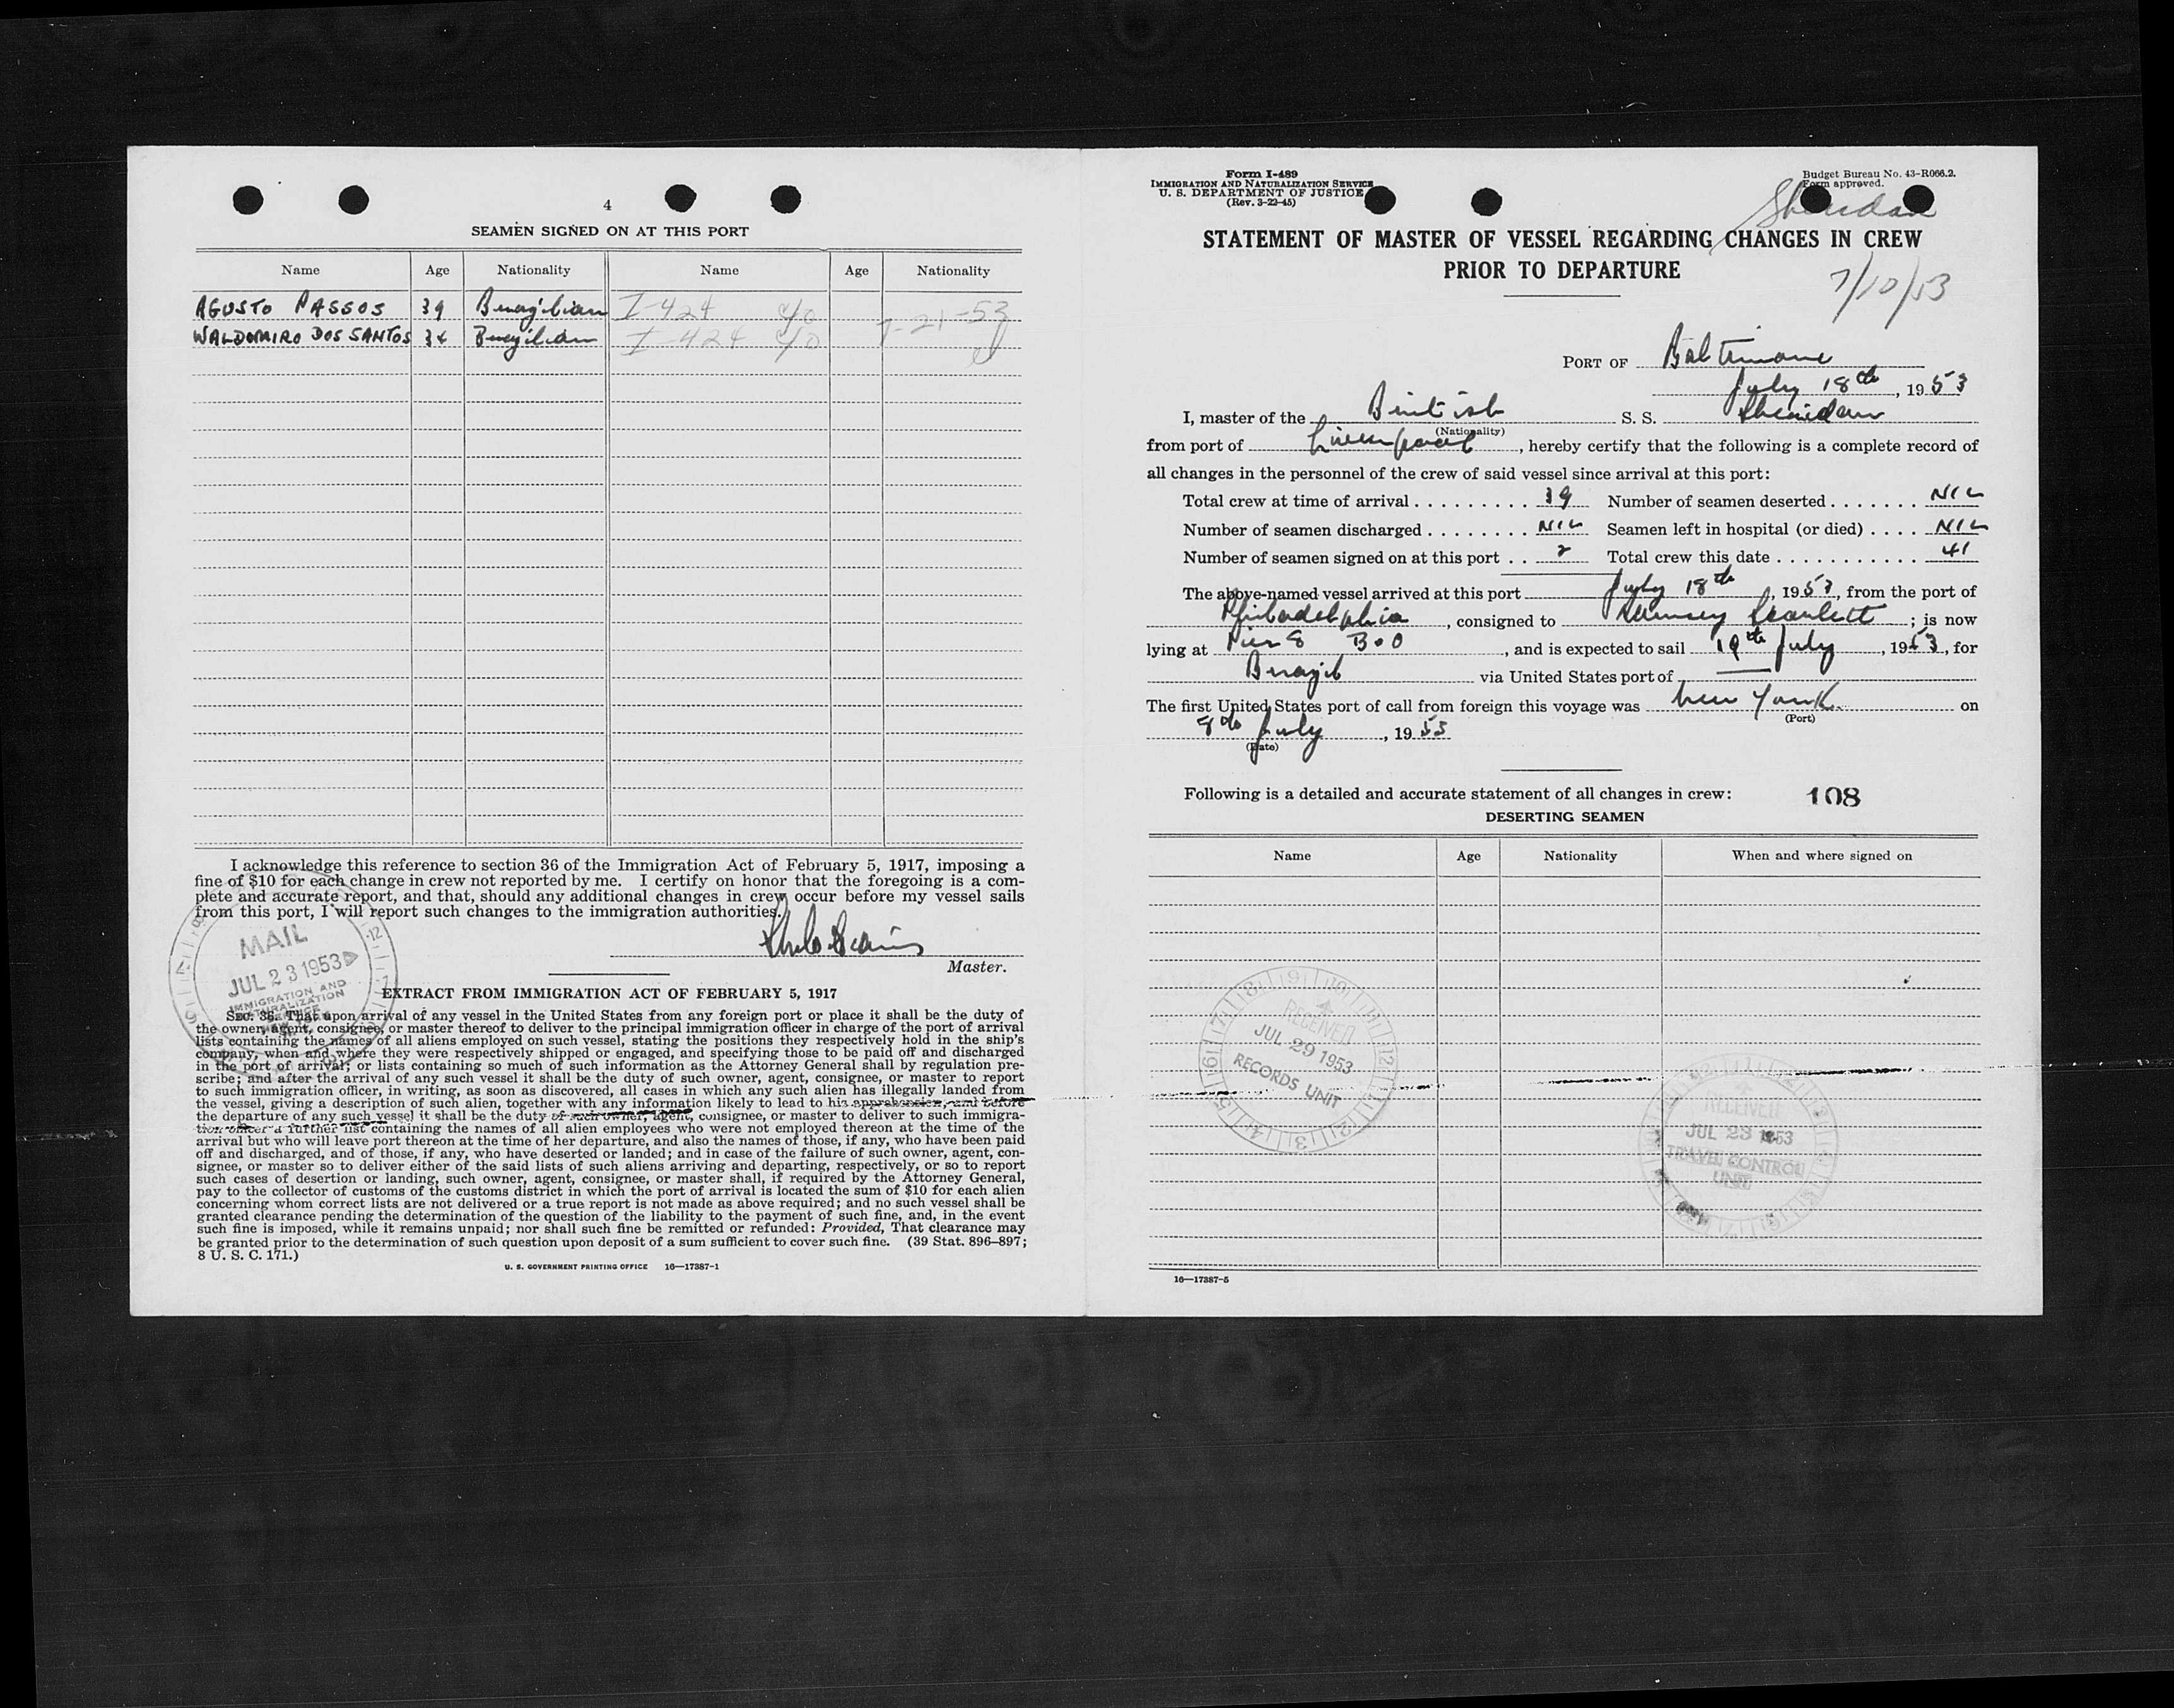 4
SEAMEN SIGNED ON AT THIS PORT
Name Age Nationality Name Age Nationality
AGUSTO PASSOS 39 Brazilian I-424
WALDOMIRO DOS SANTOS 34 Brazilian I-424 7-21-53
I acknowledge this reference to section 36 of the Immigration Act of February 5, 1917, imposing a
fine of $10 for each change in crew not reported by me. I certify on honor that the foregoing is a com-
plete and accurate report, and that, should any additional changes in crew occur before my vessel sails
from this port, I will report such changes to the immigration authorities.
Master.
MAIL
JUL 23 1953
IMMIGRATION AND
NATURALIZATION
EXTRACT FROM IMMIGRATION ACT OF FEBRUARY 5, 1917
SEC. 36. That upon arrival of any vessel in the United States from any foreign port or place it shall be the duty of
the owner, agent, consignee, or master thereof to deliver to the principal immigration officer in charge of the port of arrival
lists containing the names of all aliens employed on such vessel, stating the positions they respectively hold in the ship's
company, when and where they were respectively shipped or engaged, and specifying those to be paid off and discharged
in the port of arrival; or lists containing so much of such information as the Attorney General shall by regulation pre-
scribe; and after the arrival of any such vessel it shall be the duty of such owner, agent, consignee, or master to report
to such immigration officer, in writing, as soon as discovered, all cases in which any such alien has illegally landed from
the vessel, giving a description of such alien, together with any information likely to lead to his apprehension, and before
the departure of any such vessel it shall be the duty of such owner, agent, consignee, or master to deliver to such immigra-
tion officer a further list containing the names of all alien employees who were not employed thereon at the time of the
arrival but who will leave port thereon at the time of her departure, and also the names of those, if any, who have been paid
off and discharged, and of those, if any, who have deserted or landed; and in case of the failure of such owner, agent, con-
signee, or master so to deliver either of the said lists of such aliens arriving and departing, respectively, or so to report
such cases of desertion or landing, such owner, agent, consignee, or master shall, if required by the Attorney General,
pay to the collector of customs of the customs district in which the port of arrival is located the sum of $10 for each alien
concerning whom correct lists are not delivered or a true report is not made as above required; and no such vessel shall be
granted clearance pending the determination of the question of the liability to the payment of such fine, and, in the event
such fine is imposed, while it remains unpaid; nor shall such fine be remitted or refunded: Provided, That clearance may
be granted prior to the determination of such question upon deposit of a sum sufficient to cover such fine. (39 Stat. 896–897;
8 U. S. C. 171.)
U. S. GOVERNMENT PRINTING OFFICE 16—17387-1
Form I-489
IMMIGRATION AND NATURALIZATION SERVICE
U. S. DEPARTMENT OF JUSTICE
(Rev. 3-22-45)
Budget Bureau No. 43-R066.2.
Form approved.
Sheridan
STATEMENT OF MASTER OF VESSEL REGARDING CHANGES IN CREW
PRIOR TO DEPARTURE
7/10/53
PORT OF Baltimore
July 18th, 1953
I, master of the British S. S. Sheridan
(Nationality)
from port of Liverpool, hereby certify that the following is a complete record of
all changes in the personnel of the crew of said vessel since arrival at this port:
Total crew at time of arrival 39 Number of seamen deserted NIL
Number of seamen discharged NIL Seamen left in hospital (or died) NIL
Number of seamen signed on at this port 2 Total crew this date 41
The above-named vessel arrived at this port July 18th, 1953, from the port of
Philadelphia, consigned to Ramsey Scarlett; is now
lying at Pier 8 B&O, and is expected to sail 19th July, 1953, for
Brazil via United States port of
The first United States port of call from foreign this voyage was New York on
(Port)
8th July, 1953
(Date)
Following is a detailed and accurate statement of all changes in crew: 108
DESERTING SEAMEN
Name Age Nationality When and where signed on
RECEIVED
JUL 29 1953
RECORDS UNIT
RECEIVED
JUL 23 1953
TRAVEL CONTROL
UNIT
16—17387-5